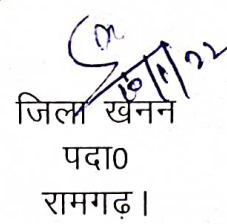 10/1/22
जिला खनन
पदा0
रामगढ़।